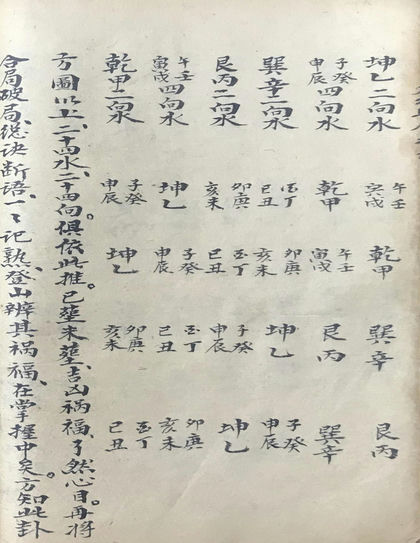 坤乙二向水 午壬寅戌 乾甲 巽辛 艮丙
子癸申辰四向水 乾甲 午壬寅戌 艮丙 巽辛
巽辛二向水 酉丁巳丑 卯庚亥未 坤乙 子癸申辰
艮丙二向水 卯庚亥未 酉丁巳丑 子癸申辰 坤乙
午壬寅戌四向水 坤乙 子癸申辰 酉丁巳丑 卯庚亥未
乾甲二向水 子癸申辰 坤乙 卯庚亥未 酉丁巳丑
方圖以上、二十四水、二十四向。俱依此推。已塟未塟、吉凶祸福、了然心目。再将
合局破局、总诀断语、一一记熟、登山辨其祸福、在掌握中矣。方知此卦